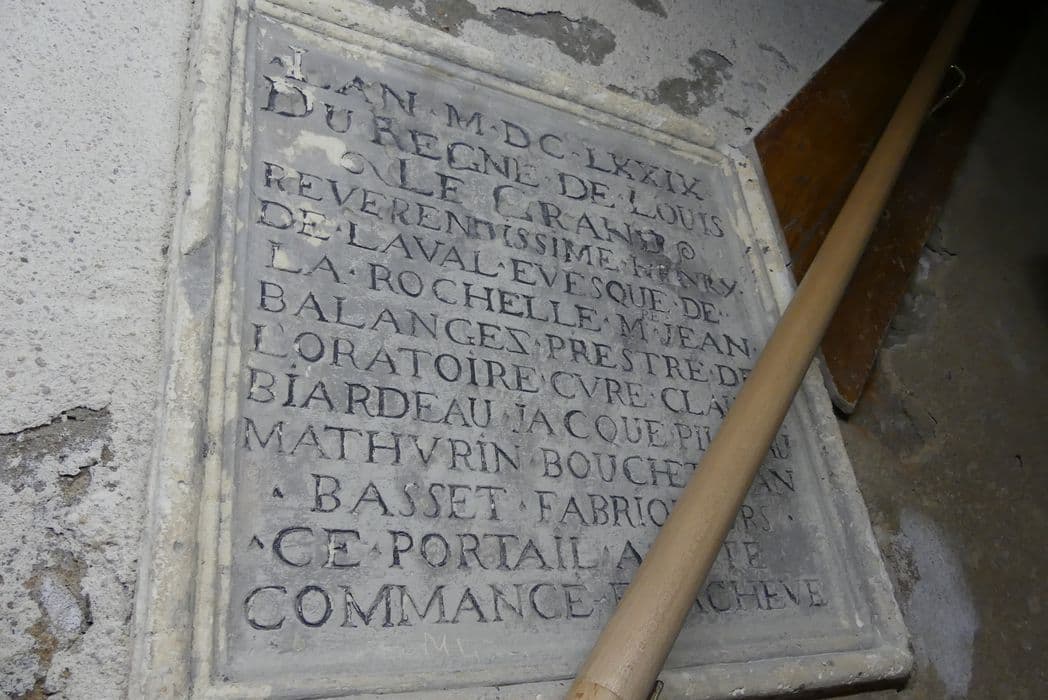 LAN · M · DC · LXXIX
DU REGNE DE LOUIS
LE GRAND
REVERENDISSIME HENRY ·
DE · LAVAL · EVESQUE · DE
LA · ROCHELLE · Mʳᵉ JEAN ·
BALANGEZ · PRESTRE · DE
L'ORATOIRE · CVRE
BIARDEAU · JACQUE
MATHVRIN BOUCHET
BASSET · FABRIQ
CE · PORTAIL · A
COMMANCE ACHEVE